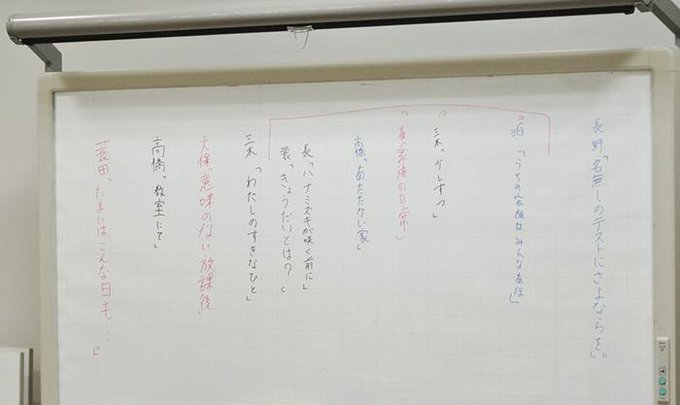 長野「名無しのテストにさよならを。」
泊「うちの家族はみんな
三木「
の日常」
高橋「あたたかい家」
長「ハナミズキが咲く前に」
蓑「きょうだいとは？」
三木「わたしのすきなひと」
大保「意味のない放課後」
高橋「教室にて」
蓑田「たまにはこんな日も…」